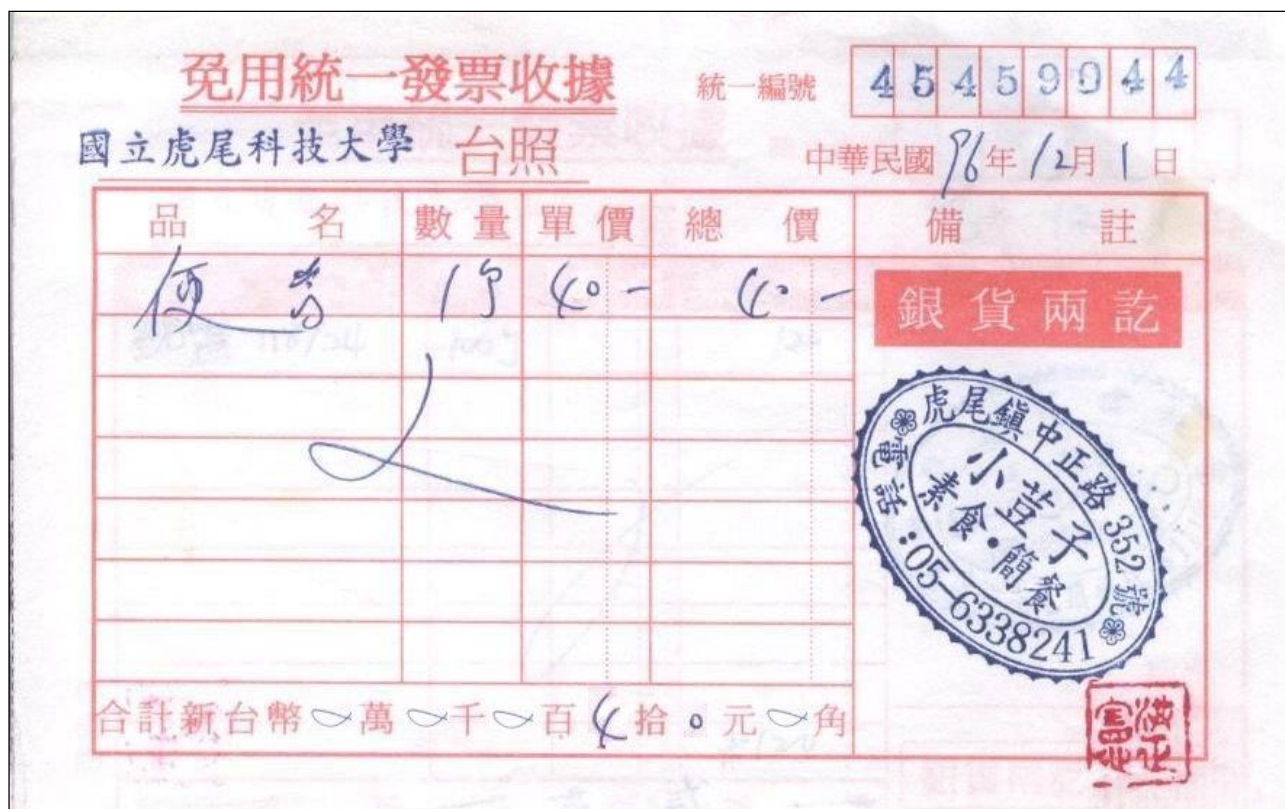 免用統一發票收據 統一編號 45459944
國立虎尾科技大學 台照 中華民國 96年 12月 1日
品名 數量 單價 總價 備註
便當 1個 40- 40-
銀貨兩訖
虎尾鎮中正路352號
小荳子
素食・簡餐
電話:05-6338241
合計新台幣0萬0千0百4拾0元0角